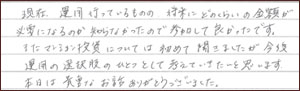 現在、運用行っているものの 将来にどのくらいの金額が
必要になるのか知らなかったので参加して良かったです。
またマンション投資については初めて聞きましたが今後
運用の選択肢のひとつとして考えていきたいと思います
本日は貴重なお話ありがとうございました。